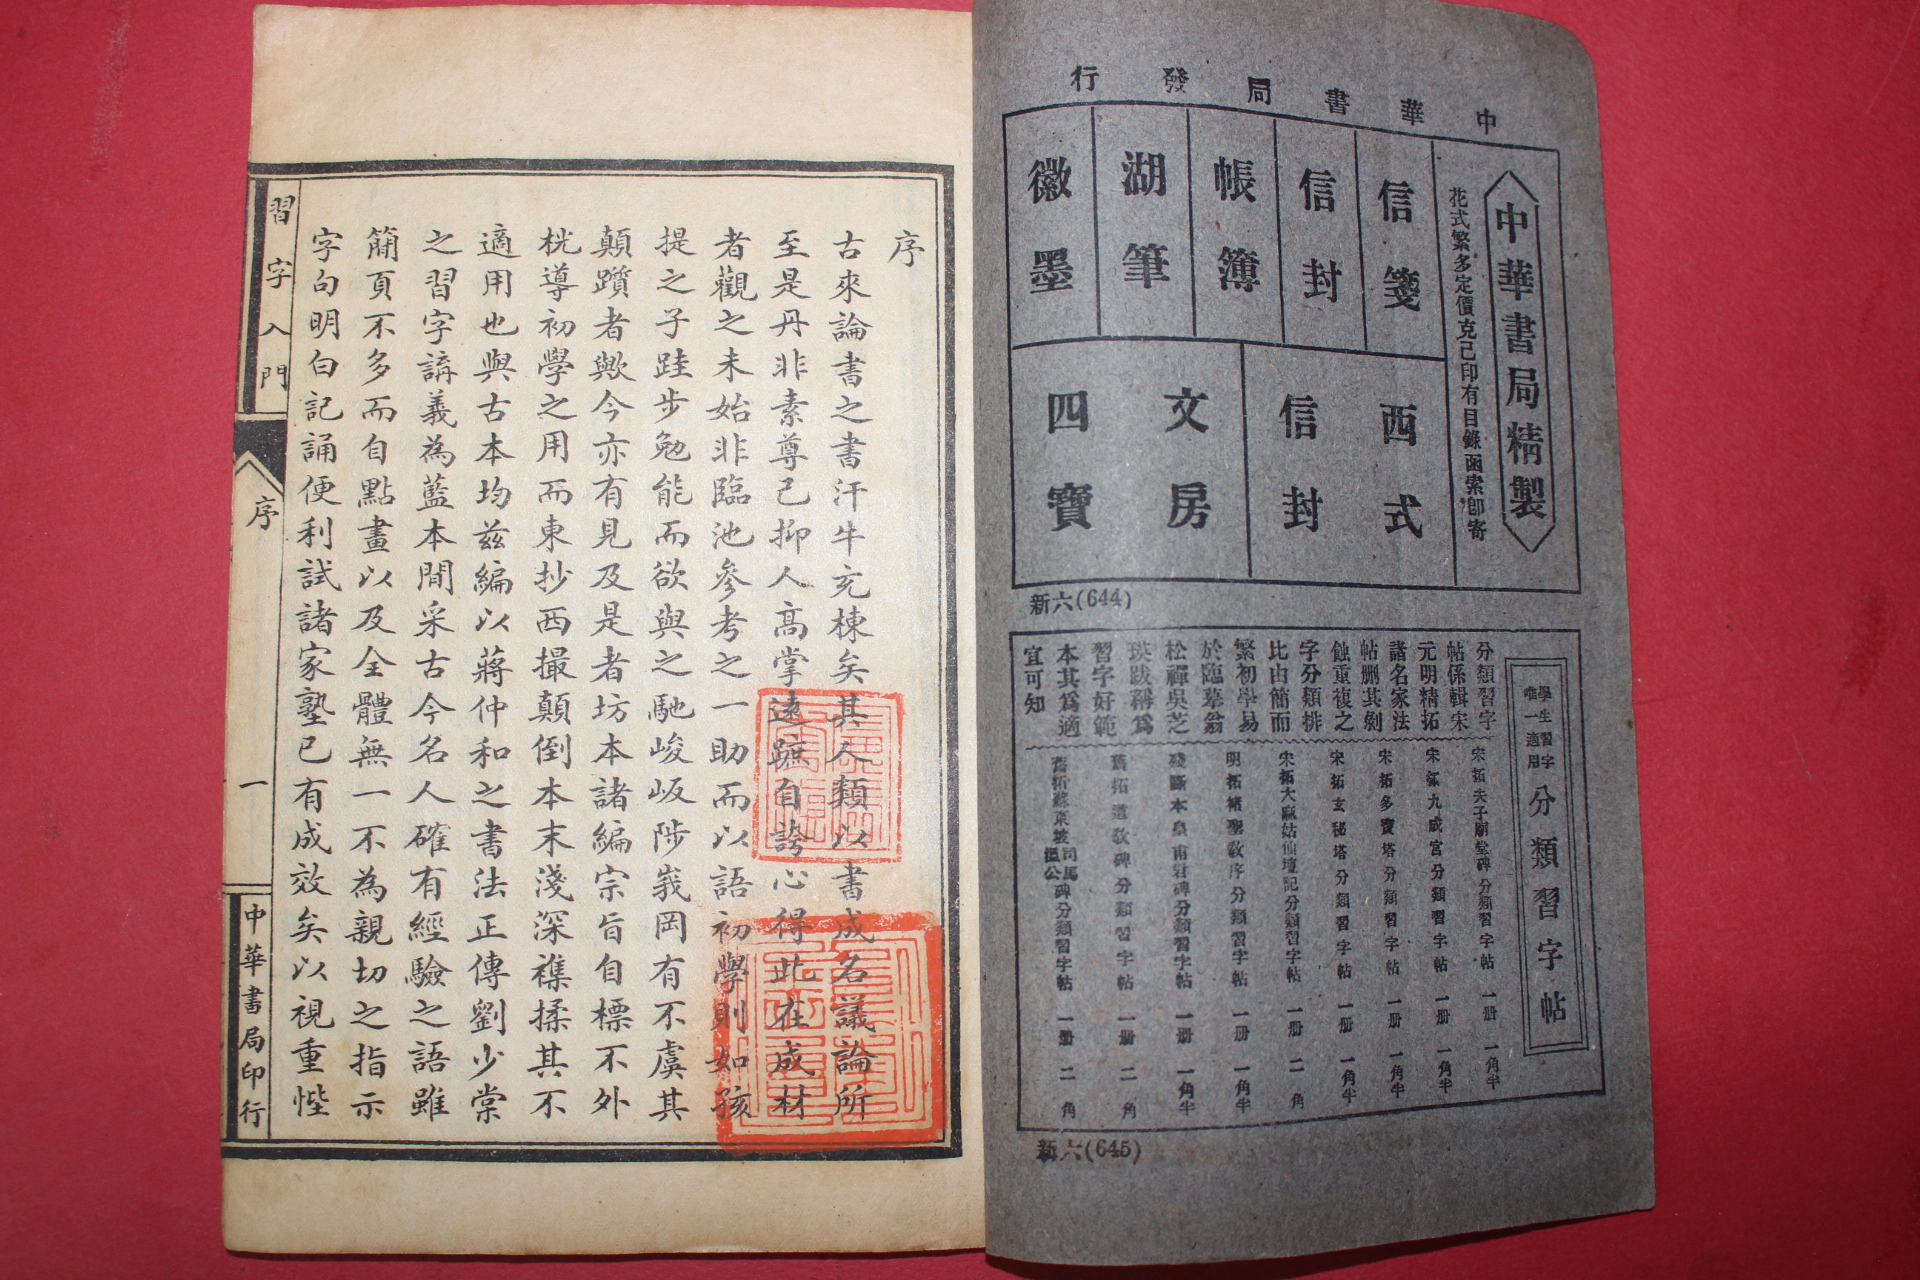 中華書局發行
中華書局精製
花式繁多定價克己印有目錄函索即寄
信箋
信封
帳簿
湖筆
徽墨
西式
信封
文房
四寶
新六(644)
學生習字
唯一適用
分類習字帖
分類習字
帖係輯宋
元明精拓
諸名家法
帖删其剝
蝕重複之
字分類排
比由簡而
繁初學易
於臨摹翁
松禪吳芝
瑛跋稱爲
習字好範
本其爲適
宜可知
宋拓夫子廟堂碑分類習字帖 一册 一角半
宋拓九成宮分類習字帖 一册 一角半
宋拓多寶塔分類習字帖 一册 一角半
宋拓玄秘塔分類習字帖 一册 一角半
宋拓大麻姑仙壇記分類習字帖 一册 二角
明拓褚聖敎序分類習字帖 一册 一角半
殘斷本皇甫君碑分類習字帖 一册 一角半
舊拓道敎碑分類習字帖 一册 二角
舊拓蘇東坡司馬溫公碑分類習字帖 一册 二角
新六(645)
序
古來論書之書汗牛充棟矣其人類以書成名議論所
至是丹非素尊己抑人高掌遠蹠自誇心得此在成材
者觀之未始非臨池參考之一助而以語初學則如孩
提之子跬步勉能而欲與之馳峻岅陟峩岡有不虞其
顛躓者歟今亦有見及是者坊本諸編宗旨自標不外
桄導初學之用而東抄西撮顛倒本末淺深襍揉其不
適用也與古本均茲編以蔣仲和之書法正傳劉少棠
之習字講義為藍本間采古今名人確有經驗之語雖
簡頁不多而自點畫以及全體無一不為親切之指示
字句明白記誦便利試諸家塾已有成效矣以視重悂
習字入門
序
一
中華書局印行